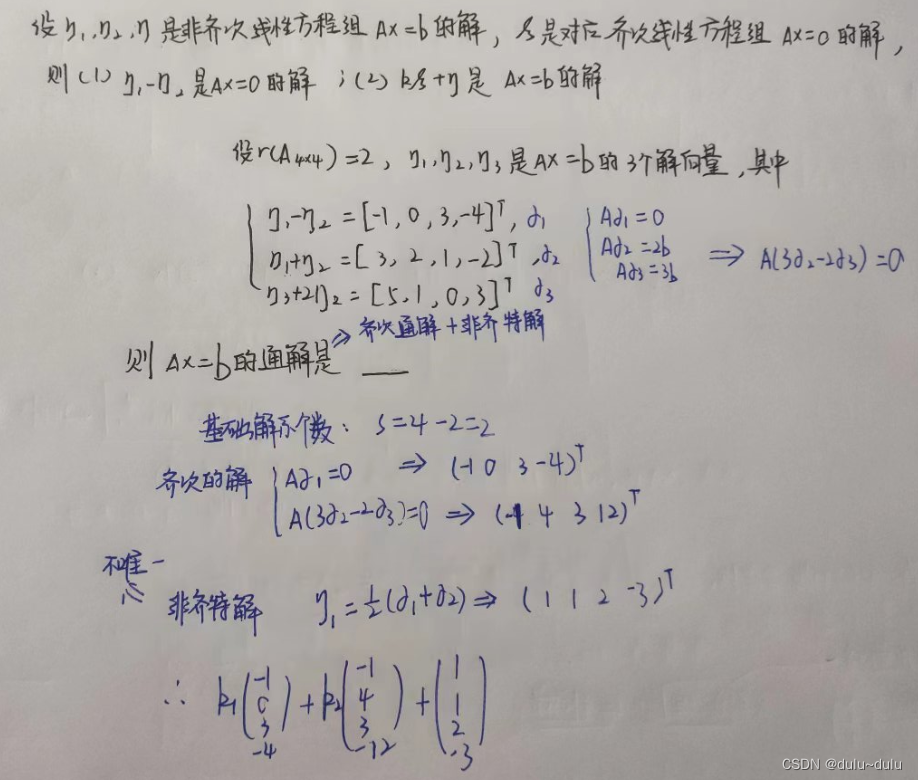 设η₁,η₂,η是非齐次线性方程组 Ax=b的解，ξ是对应齐次线性方程组 Ax=0的解，
则(1) η₁-η₂是Ax=0的解；(2) kξ+η是 Ax=b的解
设r(A₄ₓ₄)=2，η₁,η₂,η₃是Ax=b的3个解向量，其中
η₁-η₂=[-1,0,3,-4]ᵀ, ∂₁ A∂₁=0
η₁+η₂=[3,2,1,-2]ᵀ, ∂₂ A∂₂=2b ⇒ A(3∂₂-2∂₃)=0
η₃+2η₂=[5,1,0,3]ᵀ ∂₃ A∂₃=3b
⇒ 齐次通解+非齐特解
则 Ax=b的通解是 ___
基础解系个数：s=4-2=2
齐次的解 A∂₁=0 ⇒ (-1 0 3 -4)ᵀ
A(3∂₂-2∂₃)=0 ⇒ (-1 4 3 12)ᵀ
不唯一
⇑
非齐特解 η₁=½(∂₁+∂₂)⇒ (1 1 2 -3)ᵀ
∴ k₁(-1 0 3 -4)+k₂(-1 4 3 -12)+(1 1 2 -3)
CSDN @dulu~dulu